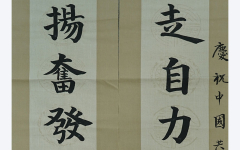 慶祝中國共
走自力
揚奮發